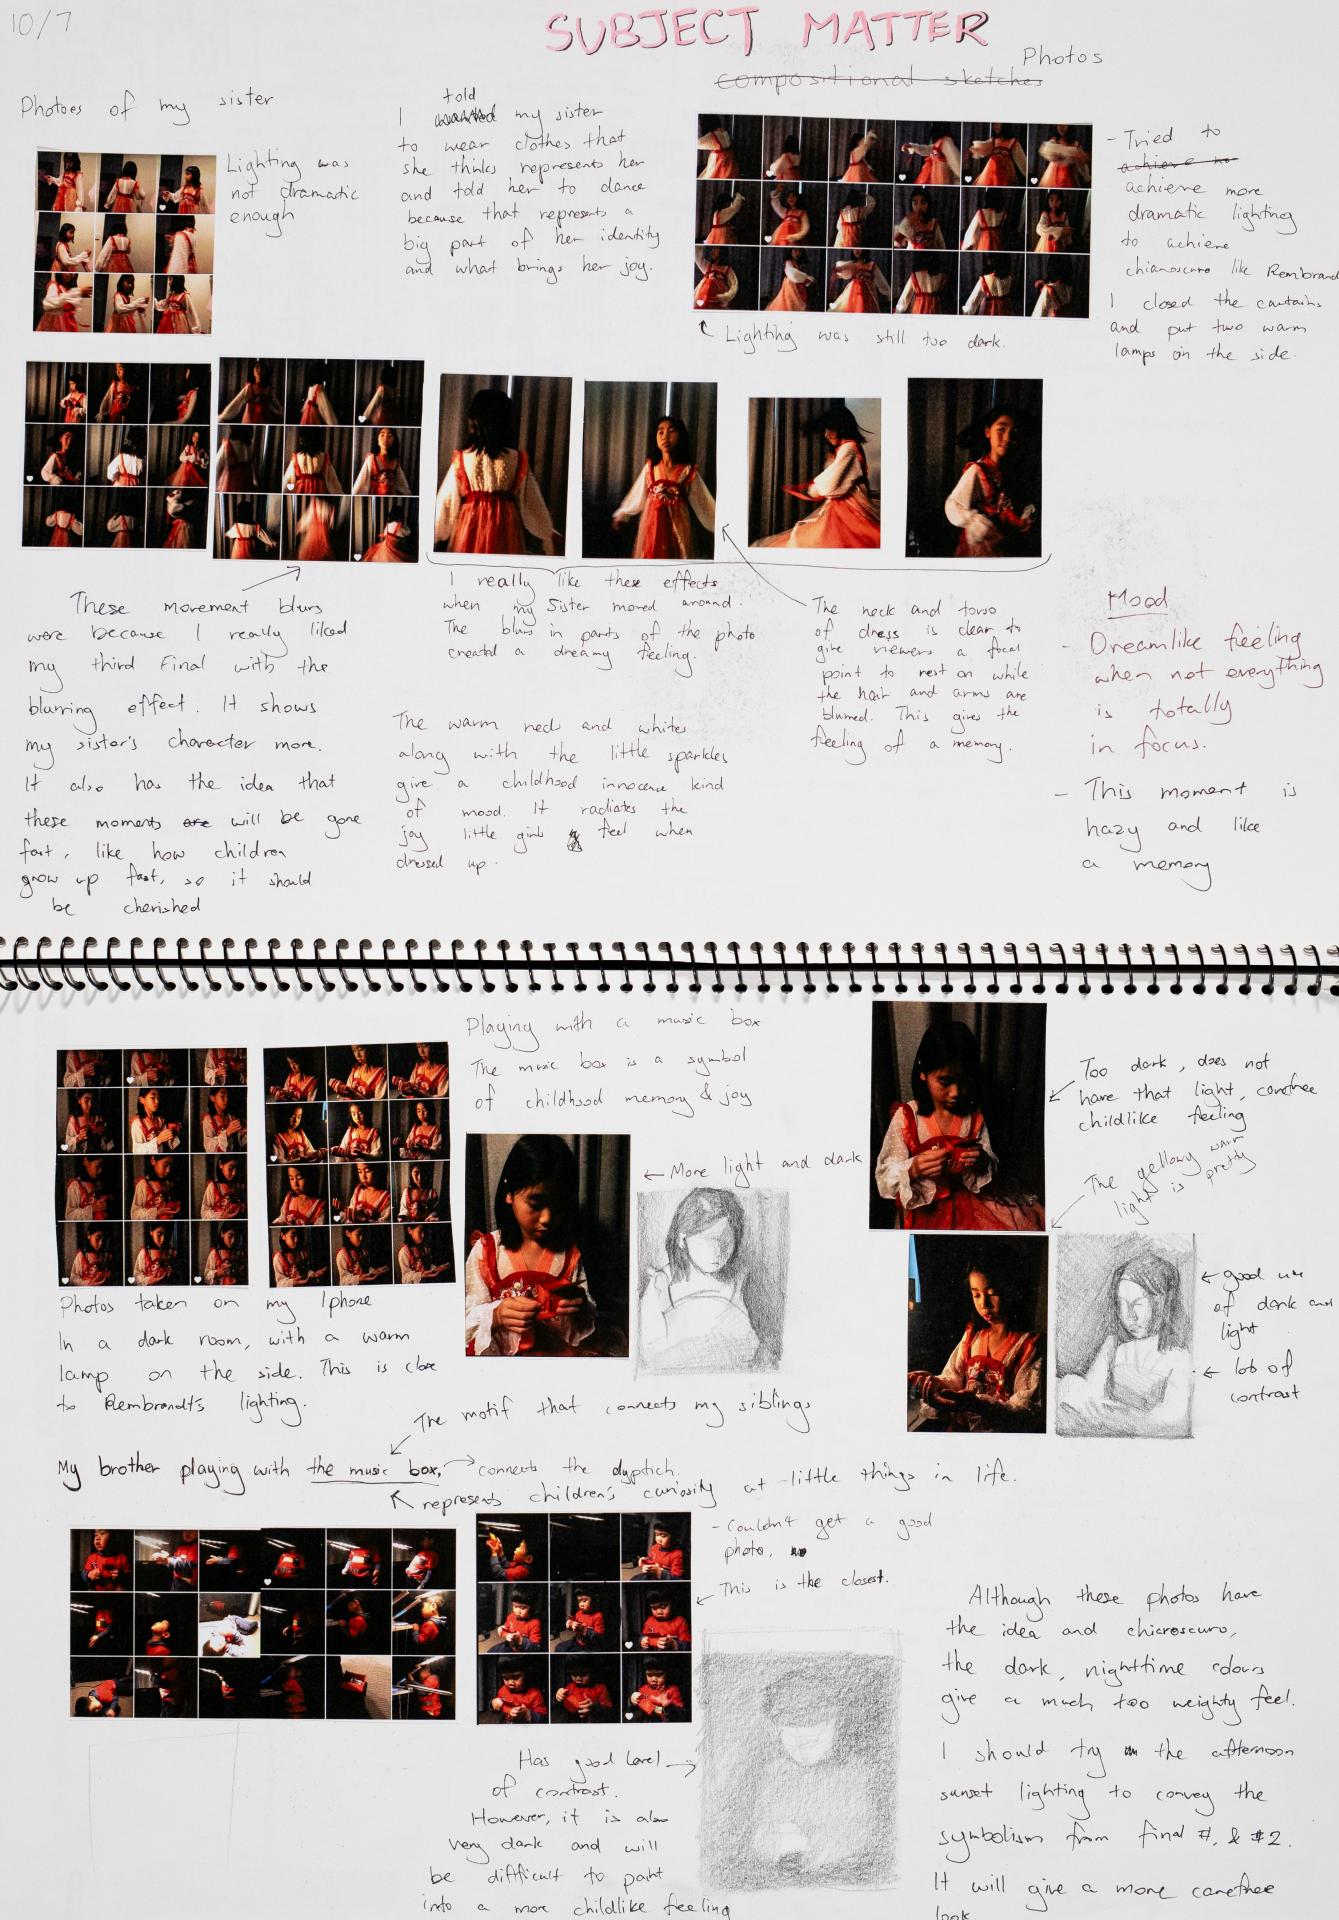 10/7
SUBJECT MATTER
compositional sketches
Photos
Photoes of my sister
Lighting was
not dramatic
enough
I told my sister
to wear clothes that
she thinks represents her
and told her to dance
because that represents a
big part of her identity
and what brings her joy.
- Tried to
achieve
achieve more
dramatic lighting
to achieve
chiaroscuro like Rembrand
I closed the curtains
and put two warm
lamps on the side.
Lighting was still too dark.
These movement blurs
were because I really liked
my third Final with the
blurring effect. It shows
my sister's character more.
It also has the idea that
these moments are will be gone
fast, like how children
grow up fast, so it should
be cherished
I really like these effects
when my Sister moved around.
The blurs in parts of the photo
created a dreamy feeling.
The warm reds and whites
along with the little sparkles
give a childhood innocence kind
of mood. It radiates the
joy little girls feel when
dressed up.
The neck and torso
of dress is clear to
give viewers a focal
point to rest on while
the hair and arms are
blurred. This gives the
feeling of a memory.
Mood
- Dreamlike feeling
when not everything
is totally
in focus.
- This moment is
hazy and like
a memory
Playing with a music box
The music box is a symbol
of childhood memory & joy
← More light and dark
Too dark, does not
have that light, carefree
childlike feeling
The yellowy warm
light is pretty
← good use
of dark and
light
← lots of
contrast
Photos taken on my Iphone
In a dark room, with a warm
lamp on the side. This is close
to Rembrandt's lighting.
The motif that connects my siblings
My brother playing with the music box, → connects the dyptich.
represents children's curiosity at little things in life.
- Couldn't get a good
photo,
This is the closest.
Has good level →
of contrast.
However, it is also
very dark and will
be difficult to paint
into a more childlike feeling
Although these photos have
the idea and chiaroscuro,
the dark, nighttime colours
give a much too weighty feel.
I should try the afternoon
sunset lighting to convey the
symbolism from final #1 & #2.
It will give a more carefree
look